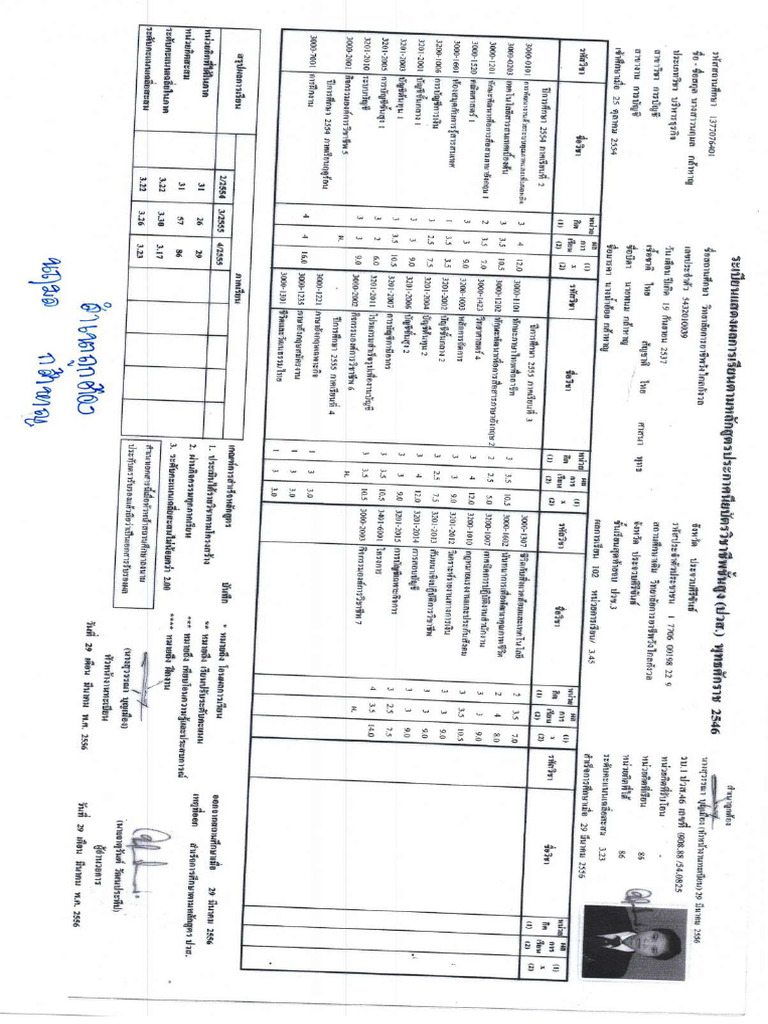 สำเนาถูกต้อง
นางสุวรรณา บุญเมือง (หัวหน้างานทะเบียน) 29 มีนาคม 2556
ระเบียนแสดงผลการเรียนตามหลักสูตรประกาศนียบัตรวิชาชีพชั้นสูง (ปวส.) พุทธศักราช 2546
รบ.1 ปวส.46
รหัสสถานศึกษา 1377076401 ชื่อสถานศึกษา วิทยาลัยการอาชีพวังไกลกังวล จังหวัด ประจวบคีรีขันธ์
ชื่อ - ชื่อสกุล
ประเภทวิชา บริหารธุรกิจ
สาขาวิชา การบัญชี
สาขางาน การบัญชี
เข้าศึกษาเมื่อ 25 ตุลาคม 2554
วัน เดือน ปีเกิด 19 กันยายน 2537
เชื้อชาติ ไทย สัญชาติ ไทย ศาสนา พุทธ
สถานศึกษาเดิม วิทยาลัยการอาชีพวังไกลกังวล
จังหวัด ประจวบคีรีขันธ์
ชั้นเรียนสุดท้ายจบ ปวช.3
ผลการเรียน 102 หน่วยการเรียน/ 3.45
หน่วยกิตที่รับโอน -
หน่วยกิตที่เรียน 86
หน่วยกิตที่ได้ 86
ระดับคะแนนเฉลี่ยสะสม 3.23
สำเร็จการศึกษาเมื่อ 29 มีนาคม 2556
รหัสวิชา ชื่อวิชา หน่วยกิต (1) ผลการเรียน (2) (1) x (2)
ปีการศึกษา 2554 ภาคเรียนที่ 2
3000-0101 4 3 12.0
3000-0203 เทคโนโลยีสารสนเทศเบื้องต้น 3 3.5 10.5
3000-1201 ทักษะพัฒนาเพื่อการสื่อสารภาษาอังกฤษ 1 2 3.5 7.0
3000-1520 คณิตศาสตร์ 1 3 3 9.0
3000-1601 ห้องสมุดกับการรู้สารสนเทศ 1 3.5 3.5
3200-1006 การบัญชีการเงิน 3 3 9.0
3201-2001 บัญชีชั้นกลาง 1 3 2.5 7.5
3201-2003 บัญชีต้นทุน 1 3 3 9.0
3201-2005 การบัญชีชั้นสูง 1 3 3.5 10.5
3201-2010 ระบบบัญชี 3 2 6.0
3000-2001 กิจกรรมองค์การวิชาชีพ 5 ผ.
ปีการศึกษา 2554 ภาคเรียนฤดูร้อน
3000-7001 การฝึกงาน 4 4 16.0
ปีการศึกษา 2555 ภาคเรียนที่ 3
3000-1101 ทักษะภาษาไทยเพื่ออาชีพ 3 3.5 10.5
3000-1202 ทักษะพัฒนาเพื่อการสื่อสารภาษาอังกฤษ 2 2 2.5 5.0
3000-1423 วิทยาศาสตร์ 4 3 4 12.0
3200-1003 หลักการจัดการ 3 3 9.0
3201-2002 บัญชีชั้นกลาง 2 3 2.5 7.5
3201-2004 บัญชีต้นทุน 2 3 4 12.0
3201-2006 บัญชีชั้นสูง 2 3 3 9.0
3201-2007 การบัญชีภาษีอากร 3 3.5 10.5
3201-2011 โปรแกรมสำเร็จรูปเพื่องานบัญชี 3 3.5 10.5
3000-2002 กิจกรรมองค์การวิชาชีพ 6 ผ.
ปีการศึกษา 2555 ภาคเรียนที่ 4
3000-1221 ภาษาอังกฤษเฉพาะกิจ 1 3 3.0
3000-1235 ภาษาอังกฤษสมัครงาน 1 3 3.0
3000-1301 ชีวิตและวัฒนธรรมไทย 1 3 3.0
3000-1307 ชีวิตกับสิ่งแวดล้อมและเทคโนโลยี 2 3.5 7.0
3000-1602 นันทนาการเพื่อพัฒนาคุณภาพชีวิต 2 4 8.0
3200-1007 เทคนิคการปฏิบัติงานสำนักงาน 3 3 9.0
3200-1010 กฎหมายแรงงานและประกันสังคม 3 3.5 10.5
3201-2012 วิเคราะห์รายงานทางการเงิน 3 3 9.0
3201-2013 สัมมนาเชิงปฏิบัติการวิชาชีพ 3 3 9.0
3201-2014 การสอบบัญชี 3 3 9.0
3201-2015 การบัญชีเฉพาะกิจการ 3 2.5 7.5
3401-6001 โครงการ 4 3.5 14.0
3000-2003 กิจกรรมองค์การวิชาชีพ 7 ผ.
สรุปผลการเรียน ภาคเรียน
2/2554 3/2555 4/2555
หน่วยกิตที่ได้ในภาค 31 26 29
หน่วยกิตสะสม 31 57 86
ระดับคะแนนเฉลี่ยในภาค 3.22 3.30 3.17
ระดับคะแนนเฉลี่ยสะสม 3.22 3.26 3.23
เกณฑ์การสำเร็จหลักสูตร
1. ประเมินได้รายวิชาตามโครงสร้าง
2. ผ่านกิจกรรมทุกภาคเรียน
3. ระดับคะแนนเฉลี่ยสะสมไม่น้อยกว่า 2.00
บันทึก
* หมายถึง โอนผลการเรียน
** หมายถึง เรียนปรับระดับคะแนน
*** หมายถึง เทียบโอนความรู้และประสบการณ์
**** หมายถึง ฝึกงาน
ออกจากสถานศึกษาเมื่อ 29 มีนาคม 2556
เหตุที่ออก สำเร็จการศึกษาตามหลักสูตร ปวส.
(นางสุวรรณา บุญเมือง)
หัวหน้างานทะเบียน
วันที่ 29 เดือน มีนาคม พ.ศ. 2556
ผู้อำนวยการ
วันที่ 29 เดือน มีนาคม พ.ศ. 2556
สำเนาถูกต้อง